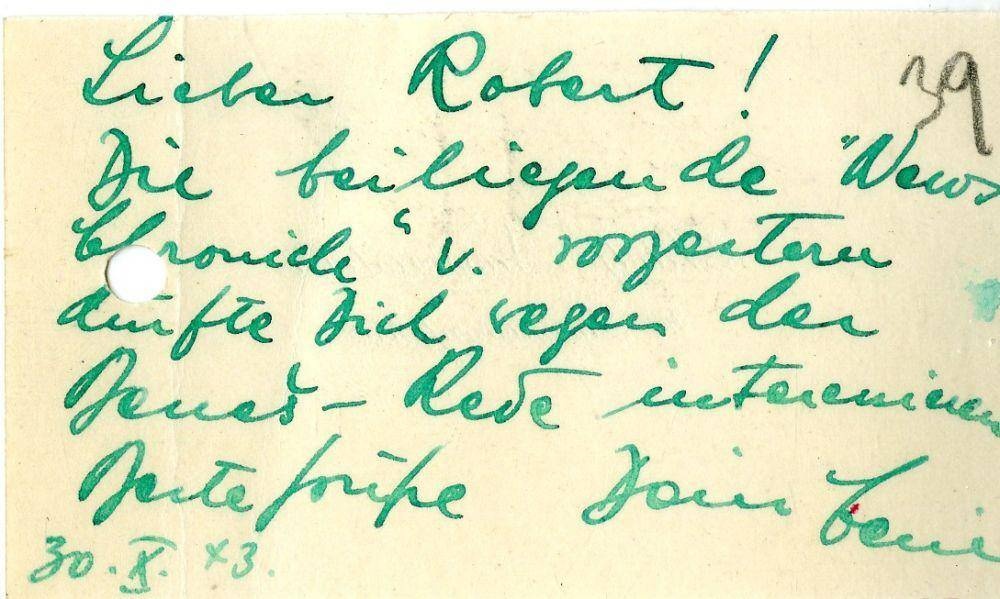 Lieber Robert!
39
Die beiliegende "News
Chronicle" v. vorgestern
dürfte Dich wegen der
Beneš-Rede interessieren
Beste Grüße Dein
30. X. 43.